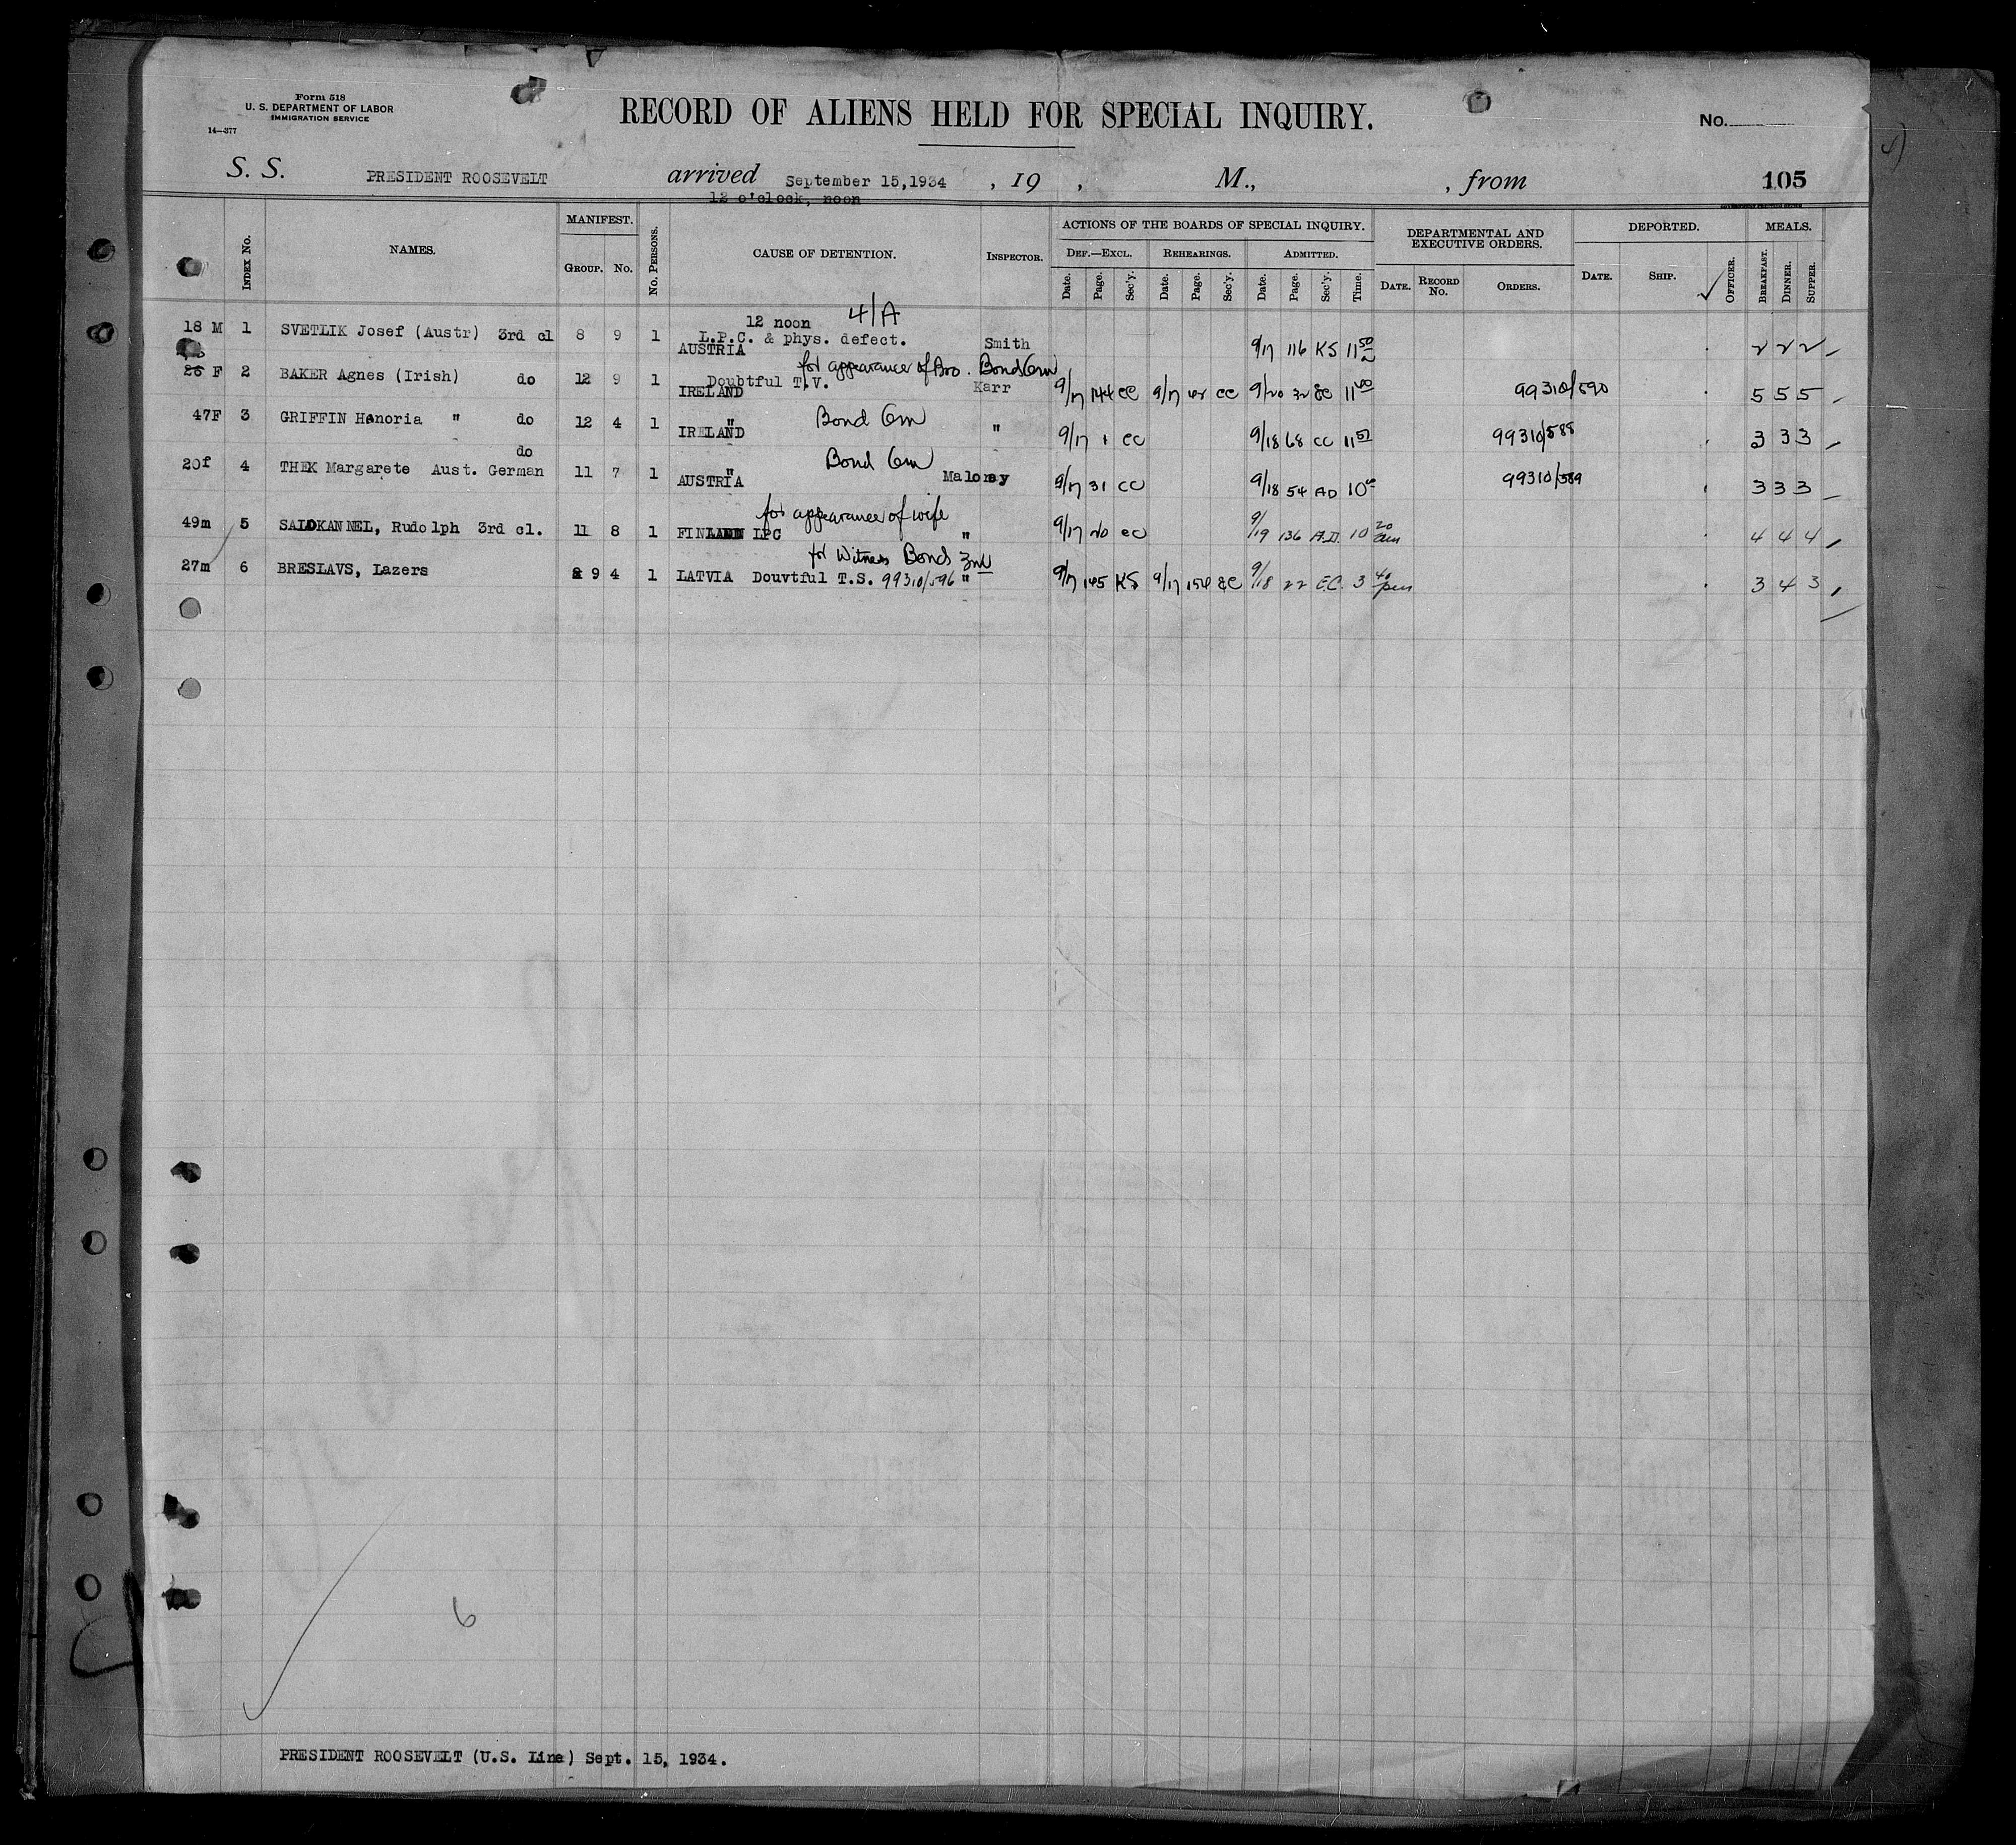 Form 518
U. S. DEPARTMENT OF LABOR
IMMIGRATION SERVICE
14—377
RECORD OF ALIENS HELD FOR SPECIAL INQUIRY.
No.
S. S. PRESIDENT ROOSEVELT arrived September 15,1934 , 19 , M., , from 105
12 o'clock, noon
INDEX No. NAMES. MANIFEST. GROUP. No. No. PERSONS. CAUSE OF DETENTION. INSPECTOR.
ACTIONS OF THE BOARDS OF SPECIAL INQUIRY. DEPARTMENTAL AND EXECUTIVE ORDERS. DEPORTED. MEALS.
DEF.—EXCL. REHEARINGS. ADMITTED.
Date. Page. Sec'y. Date. Page. Sec'y. Date. Page. Sec'y. Time. DATE. RECORD No. ORDERS. DATE. SHIP. OFFICER. BREAKFAST. DINNER. SUPPER.
12 noon 4/A
18 M 1 SVETLIK Josef (Austr) 3rd cl 8 9 1 L.P.C. & phys. defect. Smith 9/17 116 KS 11 50 2 2 2
AUSTRIA
for appearance of Bro. Bond 6m
26 F 2 BAKER Agnes (Irish) do 12 9 1 Doubtful T.V. Karr 9/17 144 CC 9/17 42 CC 9/20 32 EC 11 40 99310/590 5 5 5
IRELAND
Bond 6m
47F 3 GRIFFIN Hanoria " do 12 4 1 " " 9/17 1 CC 9/18 68 CC 11 57 99310/588 3 3 3
IRELAND
do Bond 6m
20f 4 THEK Margarete Aust. German 11 7 1 " Malomey 9/17 31 CC 9/18 54 AD 10 99310/589 3 3 3
AUSTRIA
for appearance of wife
49m 5 SALDKANNEL, Rudolph 3rd cl. 11 8 1 FINLAND LPC " 9/17 20 CC 9/19 136 A.D. 10 20 am 4 4 4
for Witness Bond 3m
27m 6 BRESLAVS, Lazers 9 4 1 LATVIA Douvtful T.S. 99310/596 " 9/17 145 KS 9/17 154 EC 9/18 22 E.C. 3 40 pm 3 4 3
6
PRESIDENT ROOSEVELT (U.S. Line) Sept. 15, 1934.